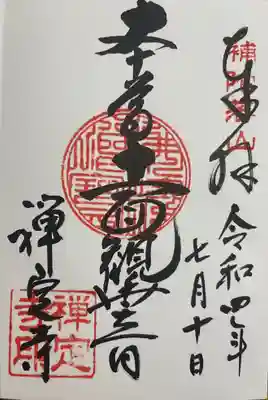 奉拝
令和四年
七月十日
本尊十一面観世音
禅定寺
禅定
寺印